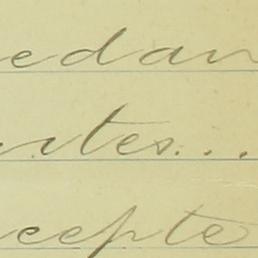 edan
utes...
cepte